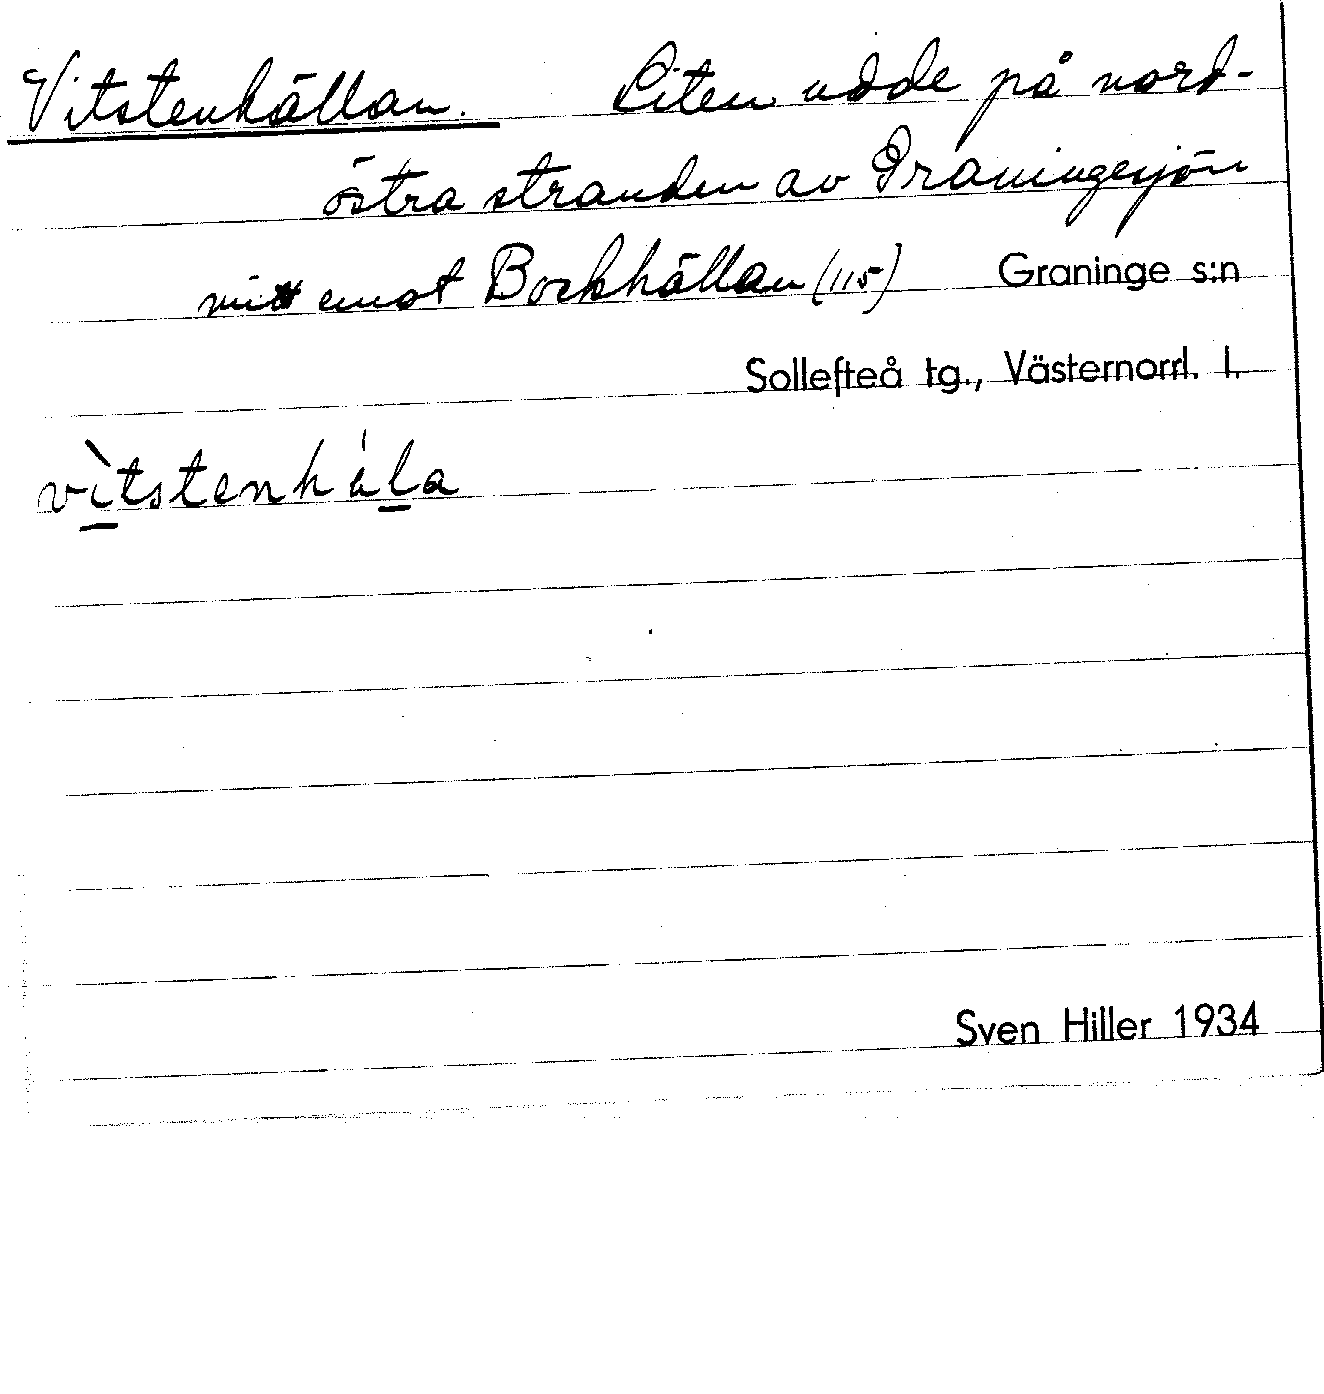 Vitstenhällan. Liten udde på nord-
östra stranden av Graningesjön
mitt emot Bockhällan (115) Graninge s:n
Sollefteå tg., Västernorrl. l.
vìtstenhála
Sven Hiller 1934